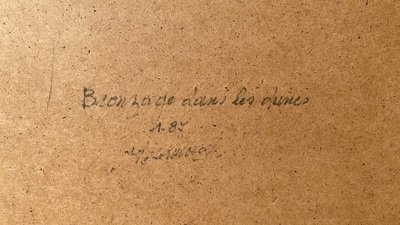 Bronzage dans les dunes
1-87